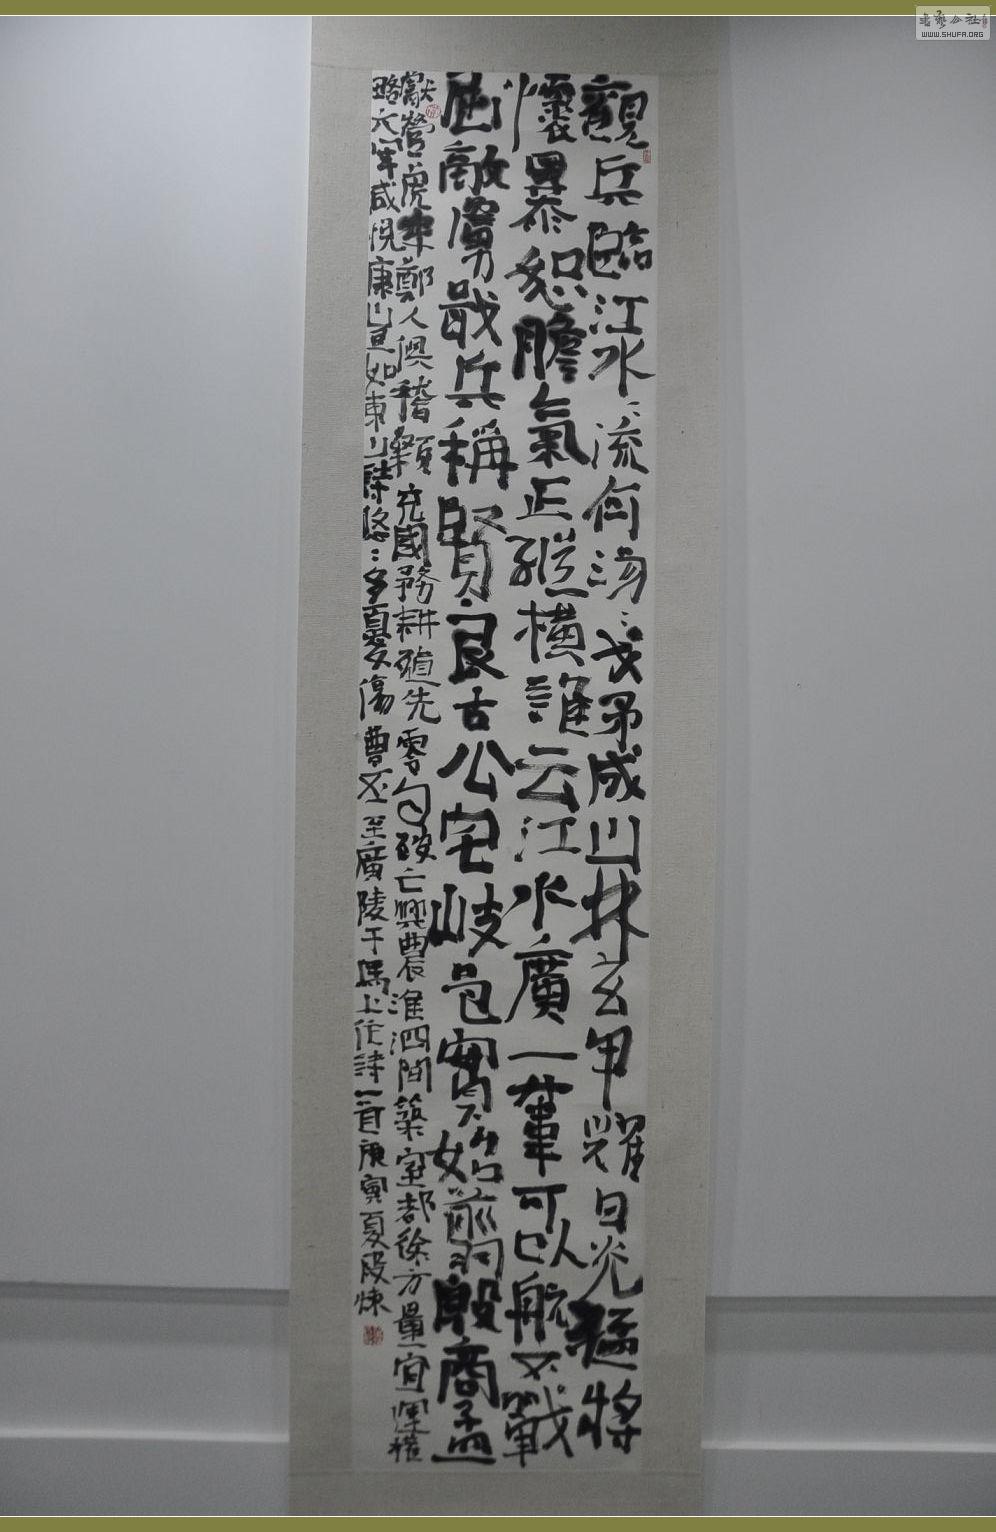 觀兵臨江水〻流何湯〻戈矛成山林玄甲耀日光猛將
懷暴怒膽氣正縱橫誰云江水廣一葦可以航不戰
屈敵虜戢兵稱賢良古公宅岐邑實始翦殷商孟
獻營虎牢鄭人俱稽顙充國務耕殖先零自破亡興農淮泗間築室都徐方量宜運權
略六軍咸悅康豈如東山詩悠〻多憂傷曹丕至廣陵于馬上作詩一首庚寅夏段煉
WWW.SHUFA.ORG